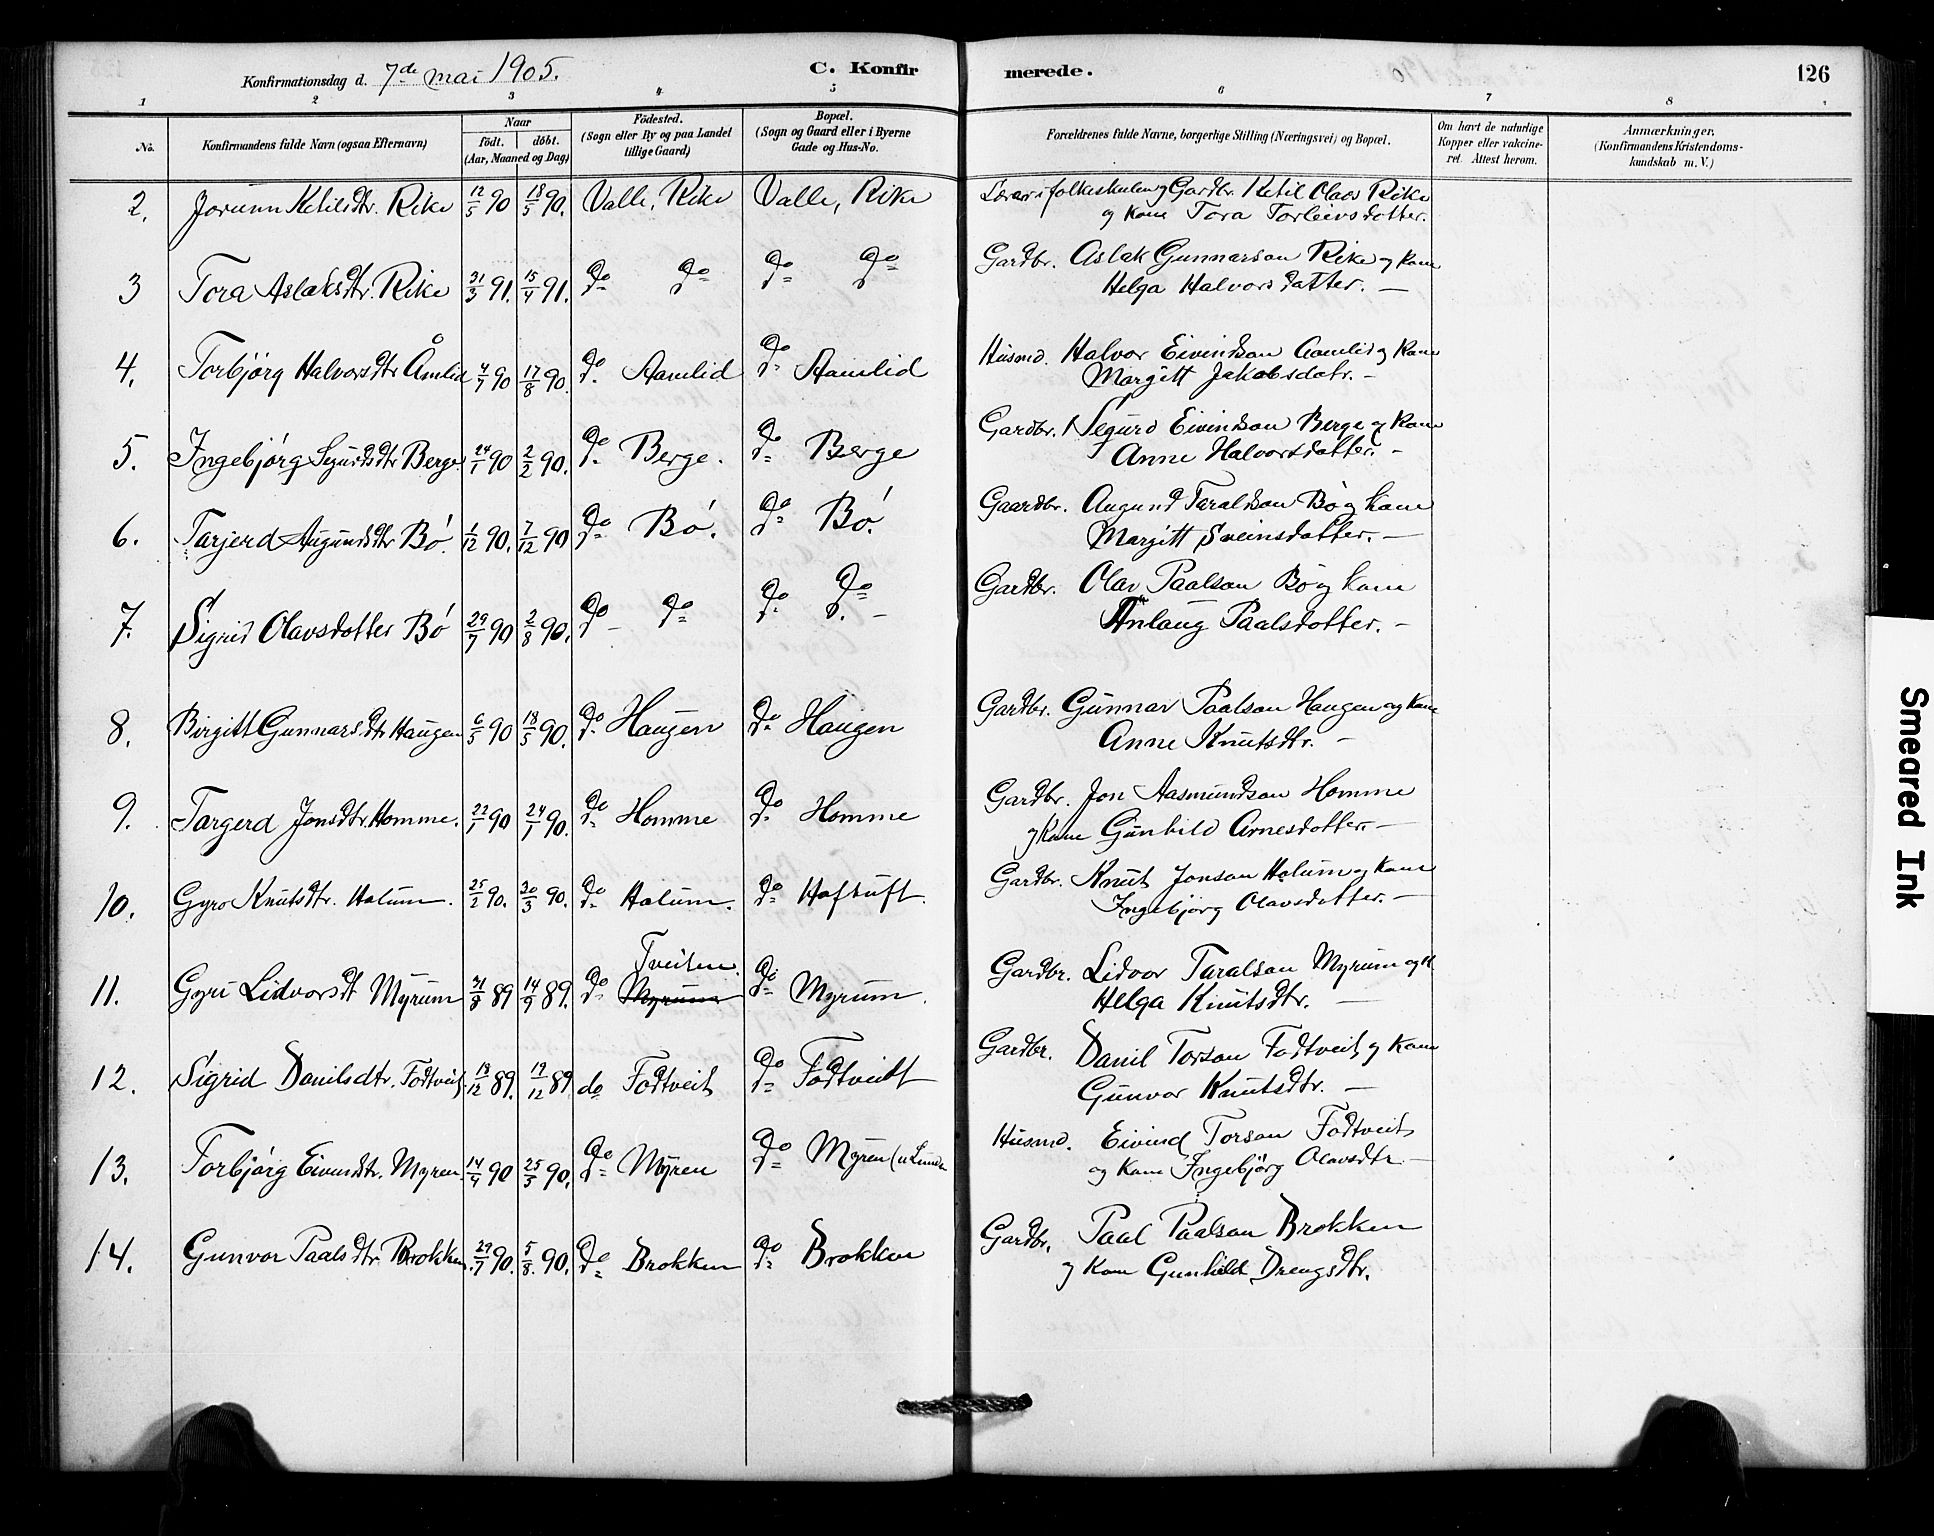 Konfirmationsdag d. 7de mai 1905. C. Konfirmerede. 126
1 2 3 4 5 6 7 8
No. Konfirmandens fulde Navn (ogsaa Efternavn) Naar født. døbt. (Aar, Maaned og Dag) Födested. (Sogn eller By og paa Landet tillige Gaard) Bopæl. (Sogn og Gaard eller i Byerne Gade og Hus-No. Forældrenes fulde Navne, borgerlige Stilling (Næringsvei) og Bopæl. Om havt de naturlige Kopper eller vakcineret. Attest herom. Anmærkninger. (Konfirmandens Kristendomskundskab m. V.)
2. Jorunn Ketilsdtr. Rike 12/5 90 18/5 90. Valle, Rike Valle, Rike Lærar i folkeskulen og Gardbr. Ketil Olavs Rike
og kone Tora Torleivsdotter.
3 Tora Aslaksdtr. Rike 31/3 91. 15/4 91. do do do do Gardbr. Aslak Gunnarson Rike og kone
Helga Halvorsdatter. —
4. Torbjørg Halvorsdtr Åmlid 4/7 90 17/8 90. do. Aamlid do Aamlid Husmd. Halvor Eivindson Aamlid og kone
Margitt Jakobsdatr. —
5. Ingebjørg Sigurdsdtr Berge 24/1 90 2/2 90. do. Berge. do Berge Gardbr. Sigurd Eivindson Berge og kone
Anne Halvorsdotter. —
6. Tarjerd Augundsdtr Bø. 1/12 90. 7/12 90 do Bø. do Bø. Gaardbr. Augund Taraldson Bø og kone
Margitt Sveinsdotter. —
7. Sigrid Olavsdotter Bø 29/7 90 2/8 90. do do do do. — Gardbr. Olav Paalson Bø og kone
Anlaug Paalsdotter. —
8. Birgitt Gunnarsdtr Haugen 6/5 90 18/5 90. do. Haugen do Haugen Gardbr. Gunnar Paalson Haugen og kone
Anne Knutsdtr. —
9. Targerd Jonsdtr. Homme. 22/1 90 24/1 90. do. Homme do. Homme Gardbr. Jon Aasmundson Homme
og kone Gunhild Arnesdotter. —
10. Gyro Knutsdtr. Holum. 25/2 90. 30/3 90. do. Holum. do. Hoftuft. Gardbr. Knut Jonson Holum og kone
Ingebjørg Olavsdotter. —
Tveiten.
11. Gyri Lidvorsdt Myrum 31/8 89 14/9 89. do Myrum do Myrum. Gardbr. Lidvor Taralson Myrum og k.
Helga Knutsdtr. —
12. Sigrid Danilsdtr. Fodtveit 18/12 89. 19/12 89 do Fodtveit do Fodtveitt Gardbr. Danil Torson Fodtveit og kone
Gunvor Knutsdtr. —
13. Torbjørg Eivindtr. Myren 14/4 90 25/5 90. do Myren do Myren Husmd. Eivind Torson Fodtveit
og kone Ingebjørg Olavsdtr —
14. Gunvor Paalsdtr. Brokken 29/7 90. 5/8. 90. do Brokken do Brokken Gardbr. Paal Paalson Brokken
og kone Gunhild Drengsdtr.
Smeared Ink